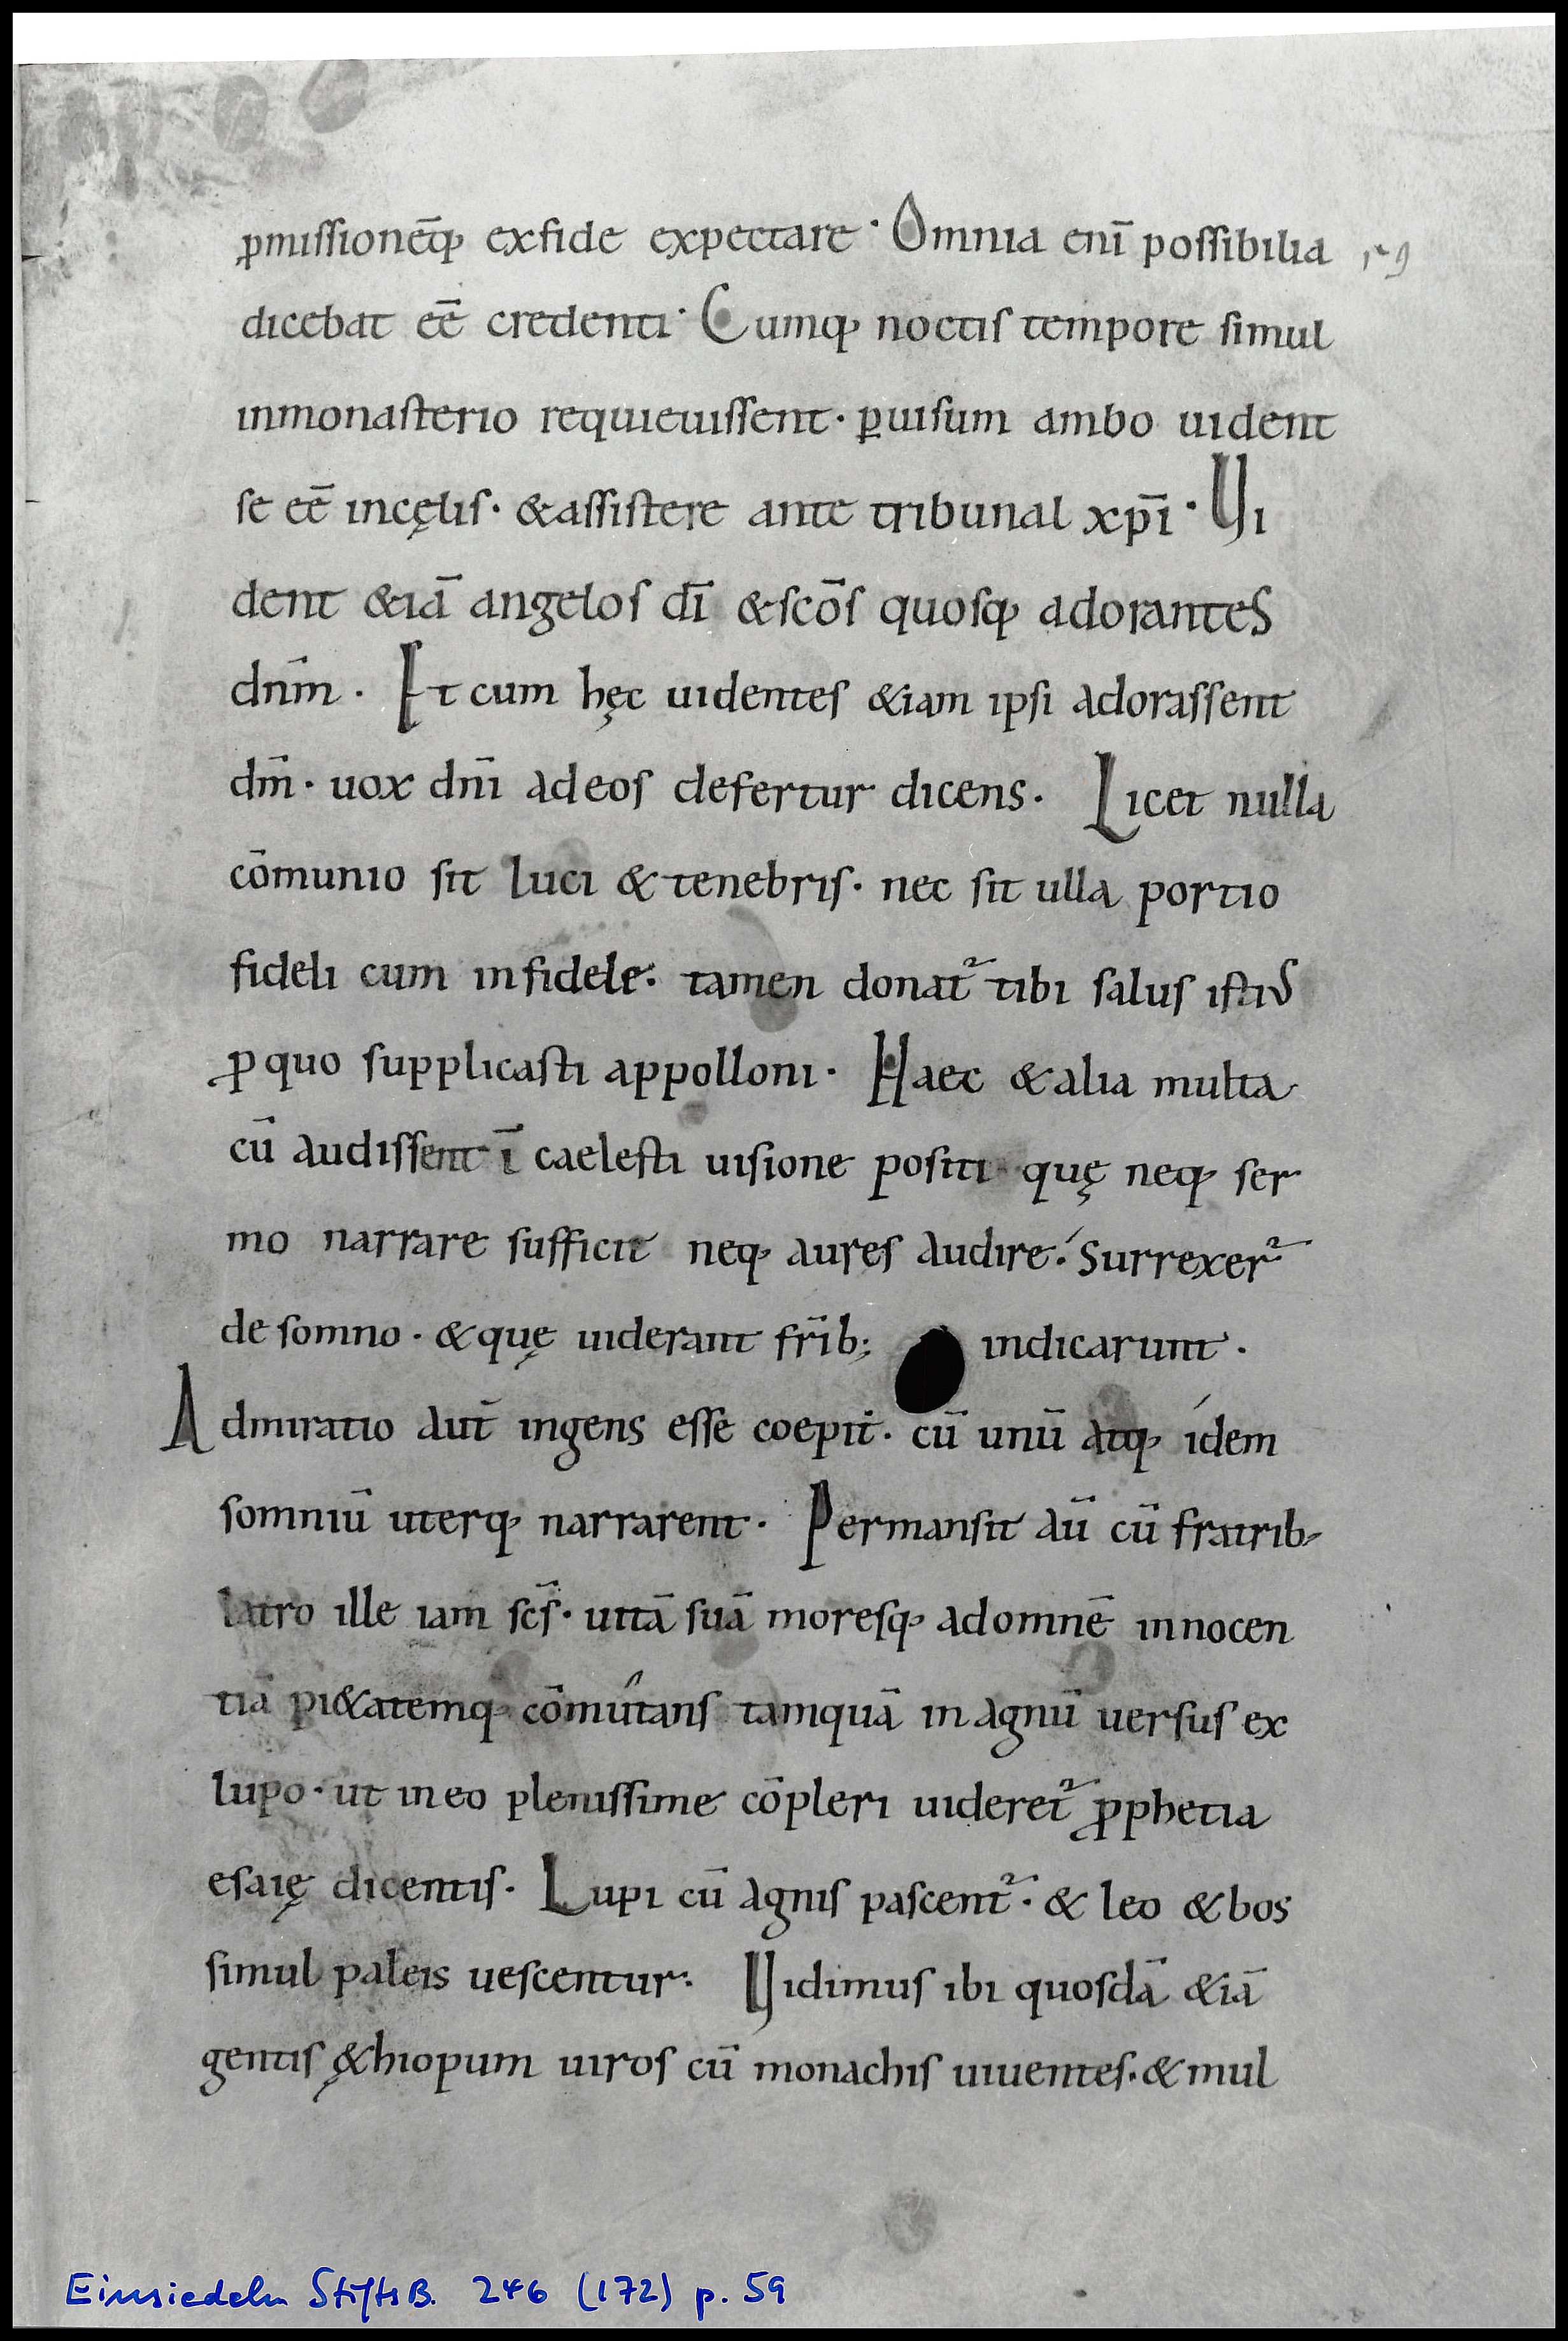 ꝓmissionēq; exfide expectare · Omnia enī possibilia
dicebat eē credenti · Cumq; noctis tempore simul
inmonasterio requieuissent · ꝑuisum ambo uident
se eē incęlis · &assistere ante tribunal xp̄i · Ui
dent &iā angelos dī &scōs quosq; adorantes
dnm̄ · Et cum hęc uidentes &iam ipsi adorassent
dm̄ · uox dnī adeos defertur dicens · Licet nulla
cōmunio sit luci & tenebris · nec sit ulla portio
fideli cum infidele · tamen donat᷑ tibi salus istiꝰ
ꝓ quo supplicasti appolloni · Haec &alia multa
cū audissent ī caelesti uisione positi quę neq; ser
mo narrare sufficit neq; aures audire · surrexer᷑
de somno · &quę uiderant fr̄ib; indicarunt ·
Admiratio aut̄ ingens esse coepit · cū unū atq; idem
somniū uterq; narrarent · Permansit aū cū fratrib;
latro ille iam sc̄s · uitā suā moresq; adomnē innocen
tiā pi&atemq; cōmutans tamquā in agnū uersus ex
lupo · ut ineo plenissime cōpleri uideret᷑ ꝓphetia
esaię dicentis · Lupi cū agnis pascent᷑ · & leo &bos
simul paleis uescentur · Uidimus ibi quosdā &iā
gentis ę&hiopum uiros cū monachis uiuentes · &mul
Einsiedeln StiftsB. 246 (172) p. 59